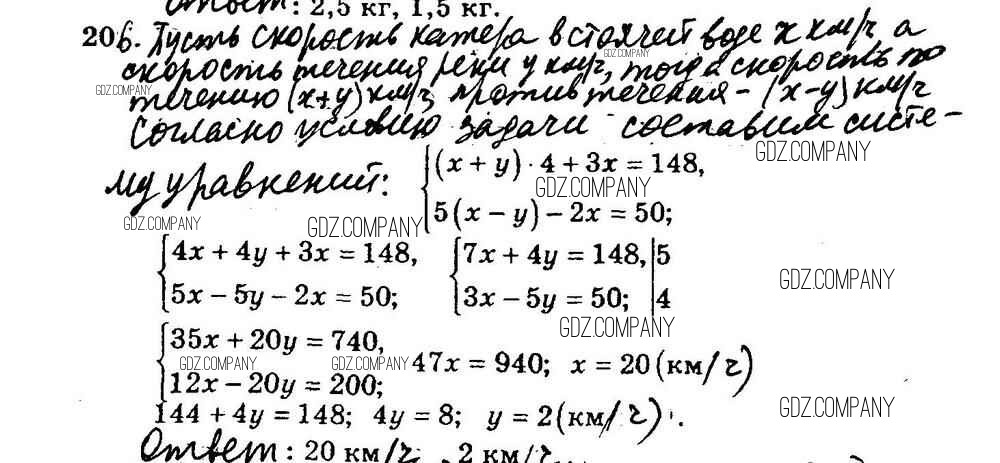 Ответ: 2,5 кг, 1,5 кг.
206. Пусть скорость катера в стоячей воде x км/ч, а
скорость течения реки y км/ч, тогда скорость по
GDZ.COMPANY
GDZ.COMPANY
течению (x+y) км/ч, против течения – (x–y) км/ч
Согласно условию задачи составим систе-
GDZ.COMPANY
му уравнений: {(x + y) · 4 + 3x = 148,
GDZ.COMPANY
5(x − y) − 2x = 50;
GDZ.COMPANY
GDZ.COMPANY
{4x + 4y + 3x = 148, {7x + 4y = 148, |5
5x − 5y − 2x = 50; 3x − 5y = 50; |4
GDZ.COMPANY
GDZ.COMPANY
{35x + 20y = 740,
GDZ.COMPANY GDZ.COMPANY 47x = 940; x = 20 (км/ч)
12x − 20y = 200;
144 + 4y = 148; 4y = 8; y = 2 (км/ч).
GDZ.COMPANY
Ответ: 20 км/ч, 2 км/ч.